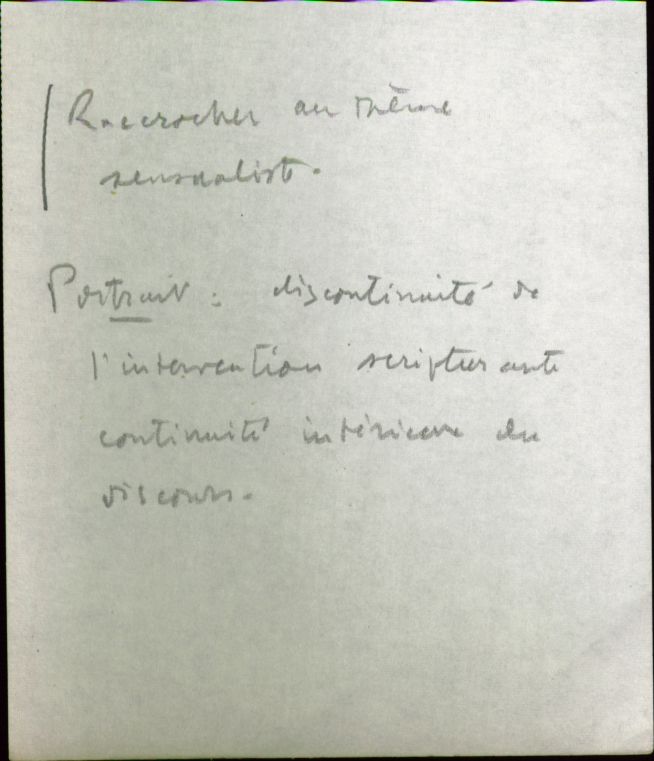 Raccrocher au thème
sensualiste.
Portrait : discontinuité de
l'intervention scripturante
continuité intérieure du
discours.